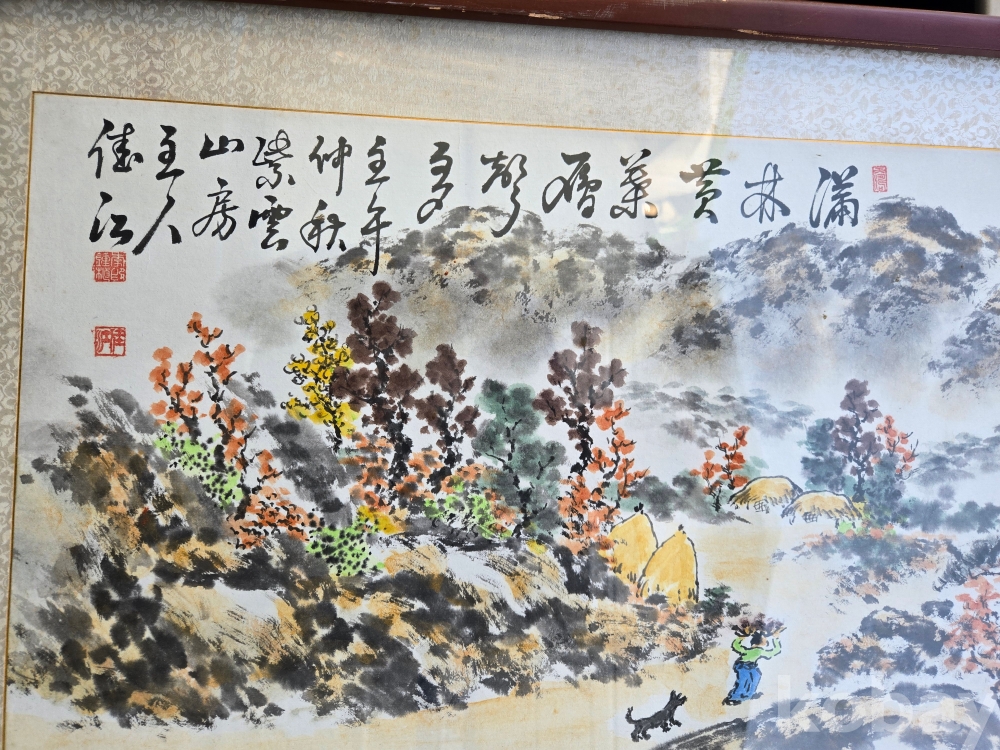 滿林黃葉雁聲多
壬午
仲秋
紫雲
山房
主人
佳江
kobay